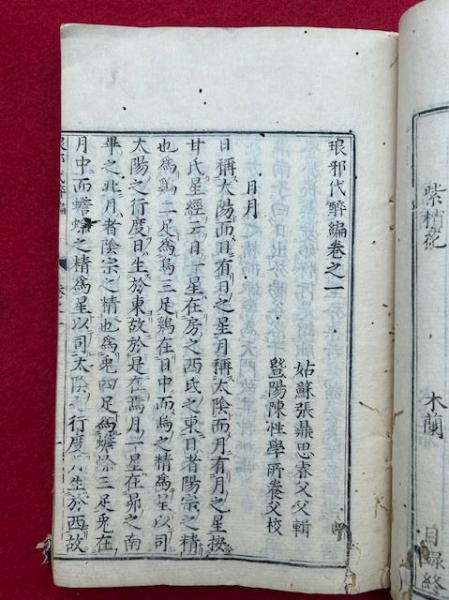 紫梢花
木蘭
目録終
琅邪代醉編卷之一
姑蘇張鼎思睿父父輯
曁陽陳性學所養父校
日月
日稱太陽而日有日之星月稱太陰而月有月之星按
甘氏星經云日一星在房之西氐之東日者陽宗之精
也爲鷄二足爲烏三足鷄在日中而烏之精爲星以司
太陽之行度日生於東故於是在焉月一星在昴之南
畢之北月者陰宗之精也爲兎四足爲蟾蜍三足兎在
月中而蟾蜍之精爲星以司太陰之行度月生於西故
琅邪代醉編